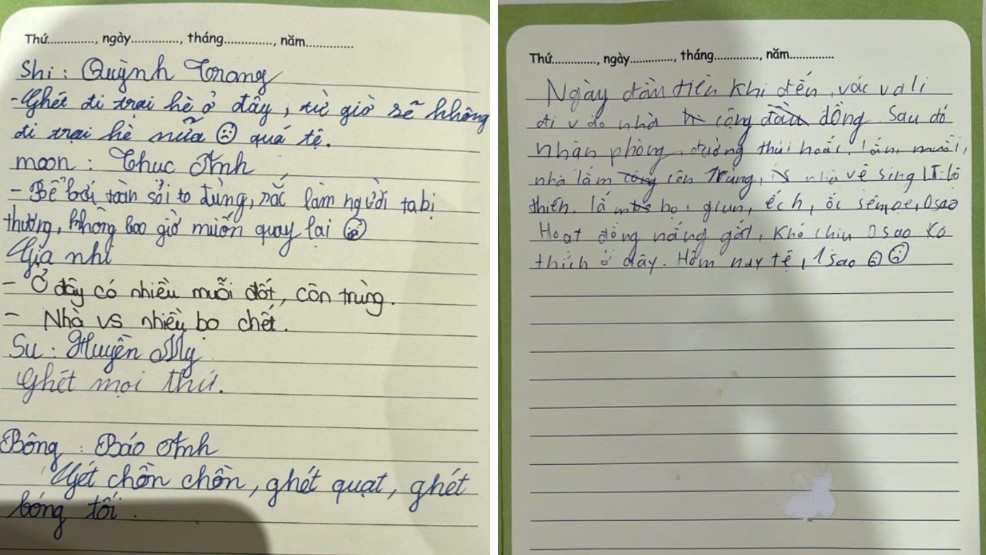 Thứ............, ngày............, tháng............, năm............
Shi : Quỳnh Trang
- Ghét đi trại hè ở đây, từ giờ sẽ không
đi trại hè nữa ☹ quá tệ.
moon : Thục Anh
- Bể bơi toàn sỏi to đùng, rác làm người ta bị
thương, không bao giờ muốn quay lại ☹
Gia nhi
- Ở đây có nhiều muỗi đốt, côn trùng.
- Nhà vs nhiều bọ chết.
Su : Huyền My
Ghét mọi thứ.
Bông : Bảo Anh
Gét chồn chồn, ghét quạt, ghét
bóng tối.
Thứ............, ngày............, tháng............, năm............
Ngày đần tiên khi đến, vác vali
đi v do nhà cộng đồng. Sau đó
nhận phòng, đường thúi hoắc, lắm muỗi,
nhà lắm côn trùng, nhà vệ sing lộ
thiên. lắm bọ, giun, ếch, ốc 0sao
Hoạt động nắng gắt, khó chịu 0sao ko
thích ở đây. Hôm nay tệ, 1sao ☹ ☹